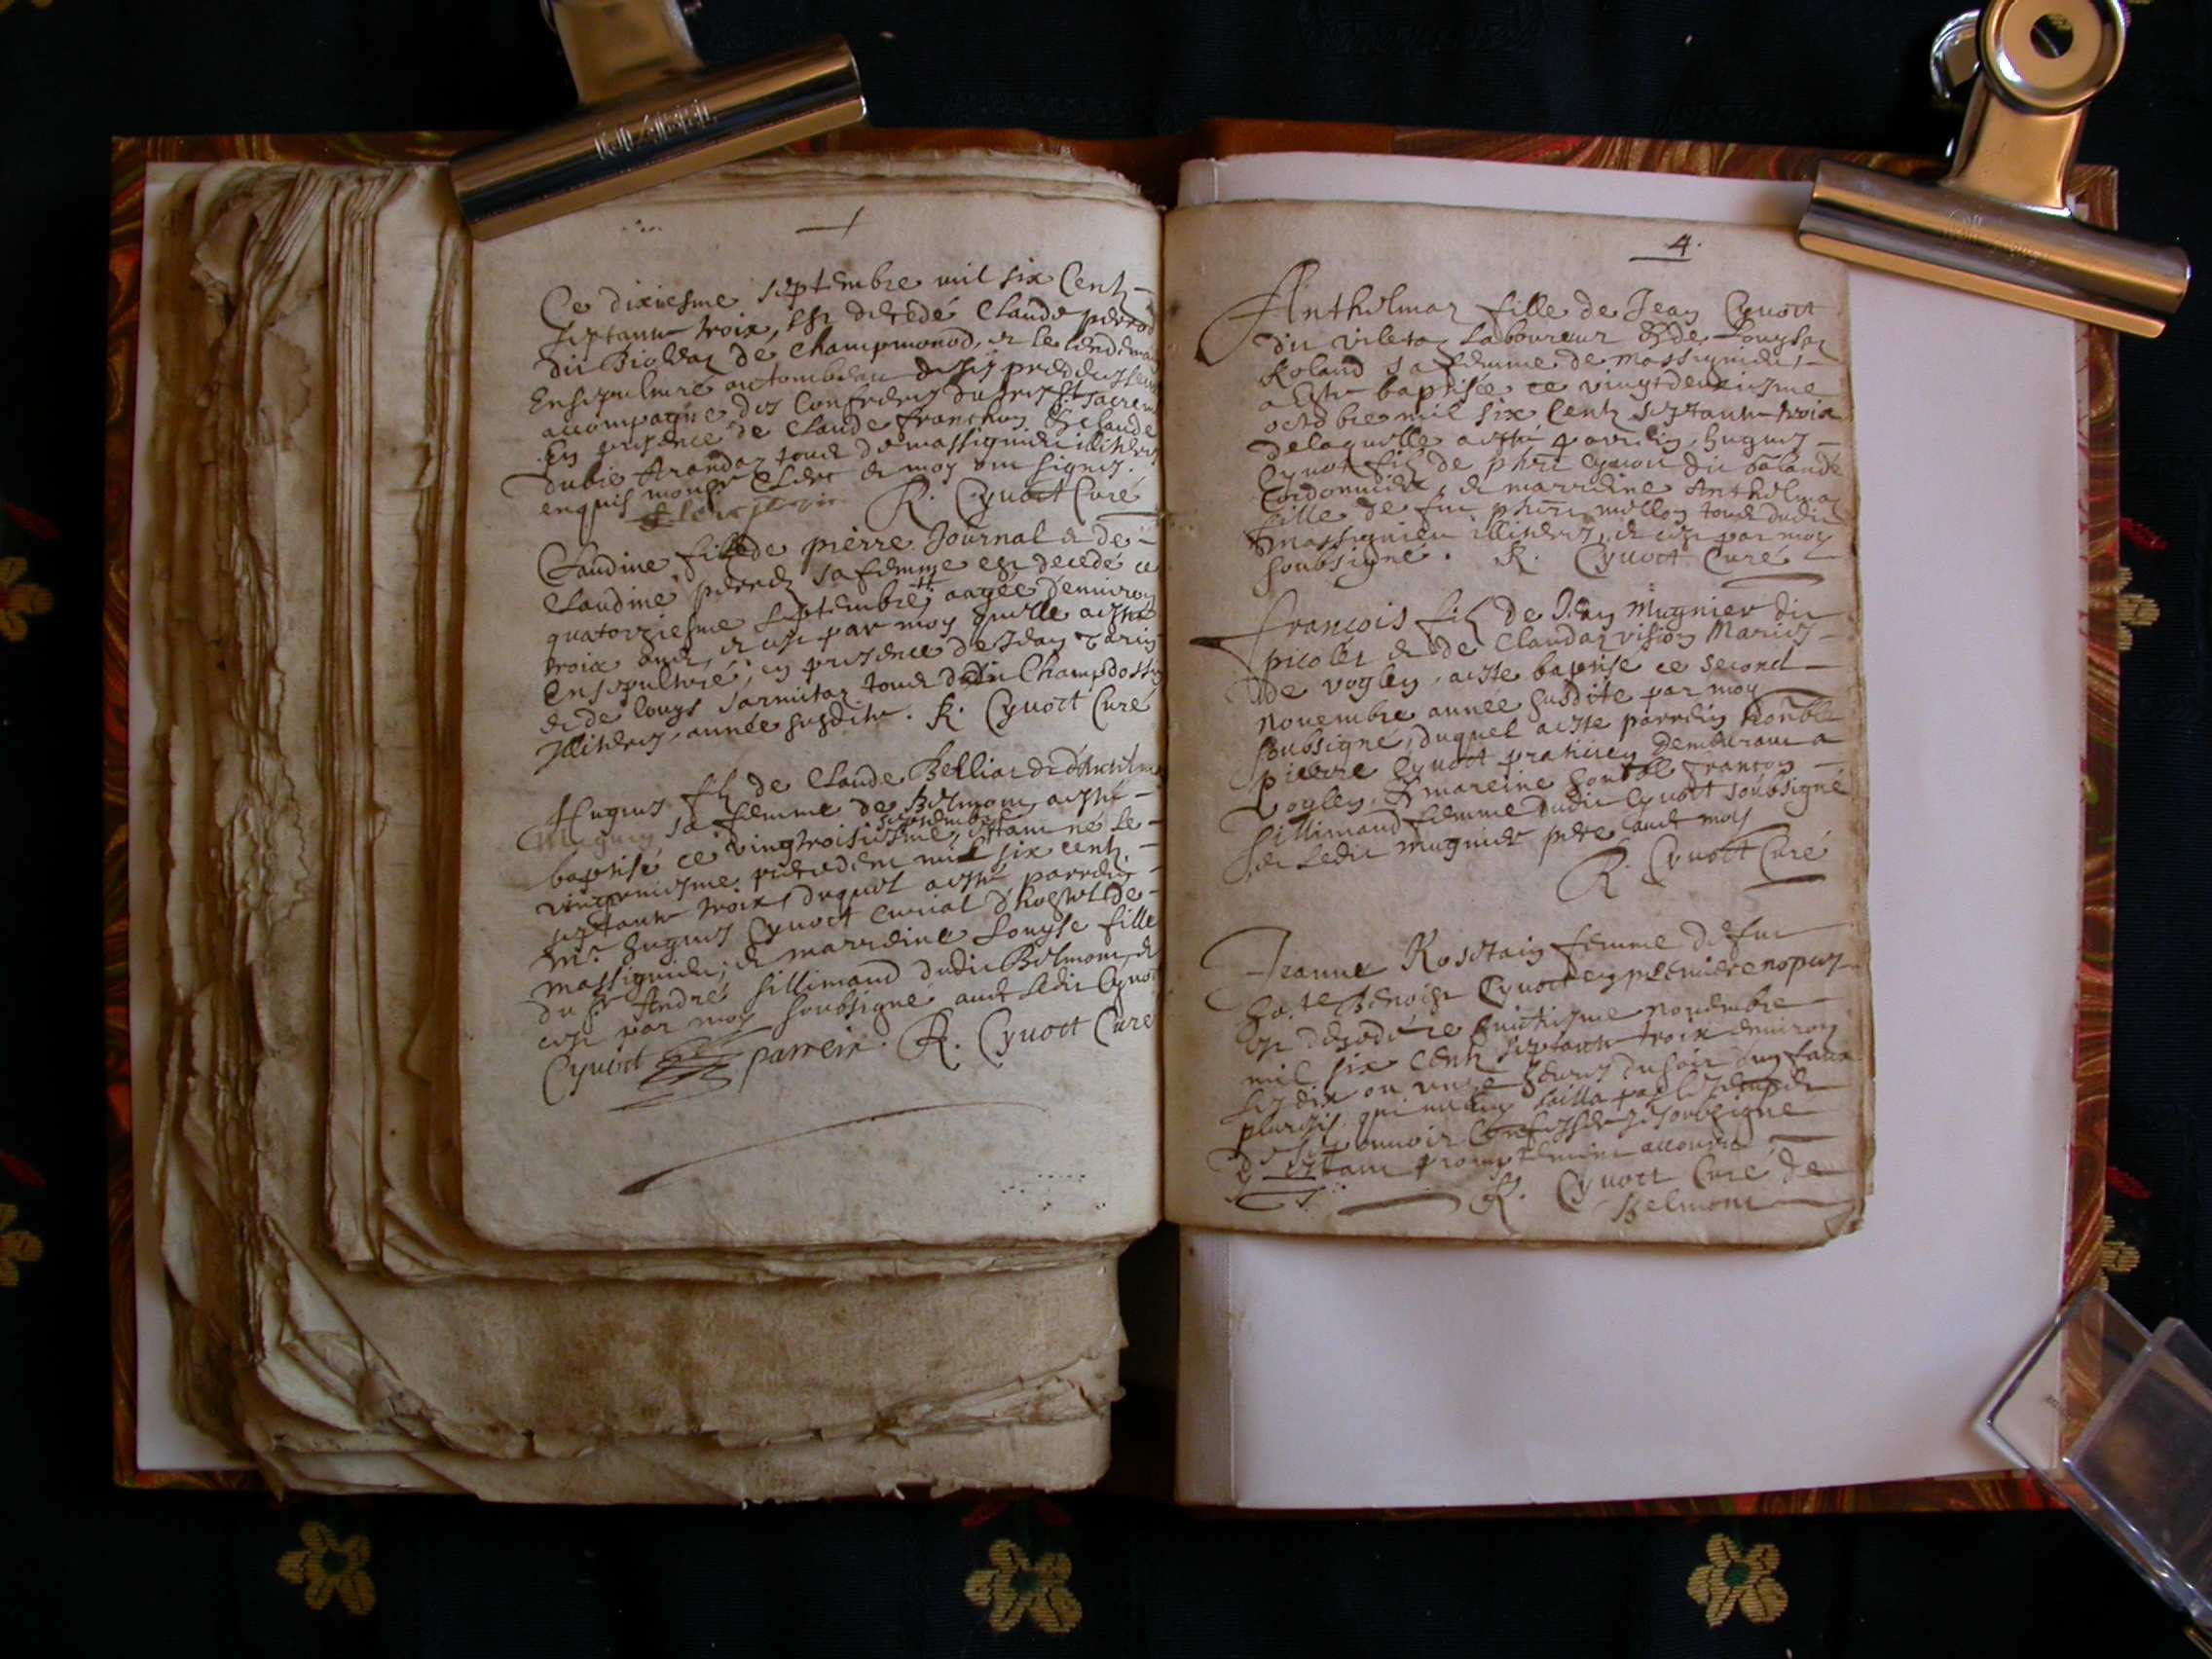 Ce dixiesme septembre mil six Centz
septante troix, est decedé Claude perrod
dit Biollaz de champmonod, et le lendemain
Ensepulturé au tombeau de ses predecesseurs
accompagné des Confreres du tres st sacrement
En presence de Claude françhoz & Claude
dubie Arandaz tous de massignieu illitheres
enquis moubz Clerc et moy ont signes.
R. Cyuoct Curé
Claudine fille de pierre Journal et de
Claudine perret sa femme est decedé ce
quatorziesme septembre aagée d'enuiron
troix ans, et cest par moy qu'elle a esté
Ensepulturé, en presence de Jean Tarin
et de louys sarmitaz tous dudit Champdossin
Illitheres, année susdite. R. Cyuoct Curé
Hugues fz de Claude Belliard et d'Anthelma
sa femme de Belmont, a esté
septembre
baptisé ce vingtroisiesme, estant né le
vingtuniesme precedent mil six centz
septante troix, duquel a esté parrein
Mr. Hugues Cyuoct curial d'hostel de
massignieu; et marreine Louyse fille
du sr André sillimand dudit Belmont, et
cest par moy soubsigné auec ledit Cyuoct
Cyuoct parrein. R. Cyuoct Curé
4.
Anthelmaz fille de Jean Cyuoct
dit viletaz Laboureur & de Louysaz
Roland sa femme de massignieu,
a Esté baptisée ce vingtdeuxiesme
octobre mil six Centz septante troix
de laquelle a esté parrein, hugues
Cyuoct filz de phri Cyuoct dit balandé
Cordonnier, et marreine Anthelmaz
fille de fut phri millioz tous dudit
massignieu illitheres, et cest par moy
soubsigné. R. Cyuoct Curé
françois filz de Jean Mugnier dit
picolet et de Claudaz vision Mariés
de voglen, a esté baptise ce second
nouembre année susdite par moy
soubsigné, duquel a esté parrein honble
pierre Cyuoct praticien demeurant a
voglen, & mareine honble françon
sillimand femme dudit Cyuoct soubsigné
et ledit mugnier pere auec moy
R. Cyuoct Curé
Jeanne Rostaing femme de fut
ho.te Benoist Cyuoct en premiere nopces
est decedée ce huictiesme nouembre
mil six centz septante troix enuiron
les dix ou unze heures du soir d'un faux
pluresis qui ne luy lailla pas le temps
de se pouuoir confesser, le soubsigné
y estant promptement accouru
R. Cyuoct Curé de
Belmont